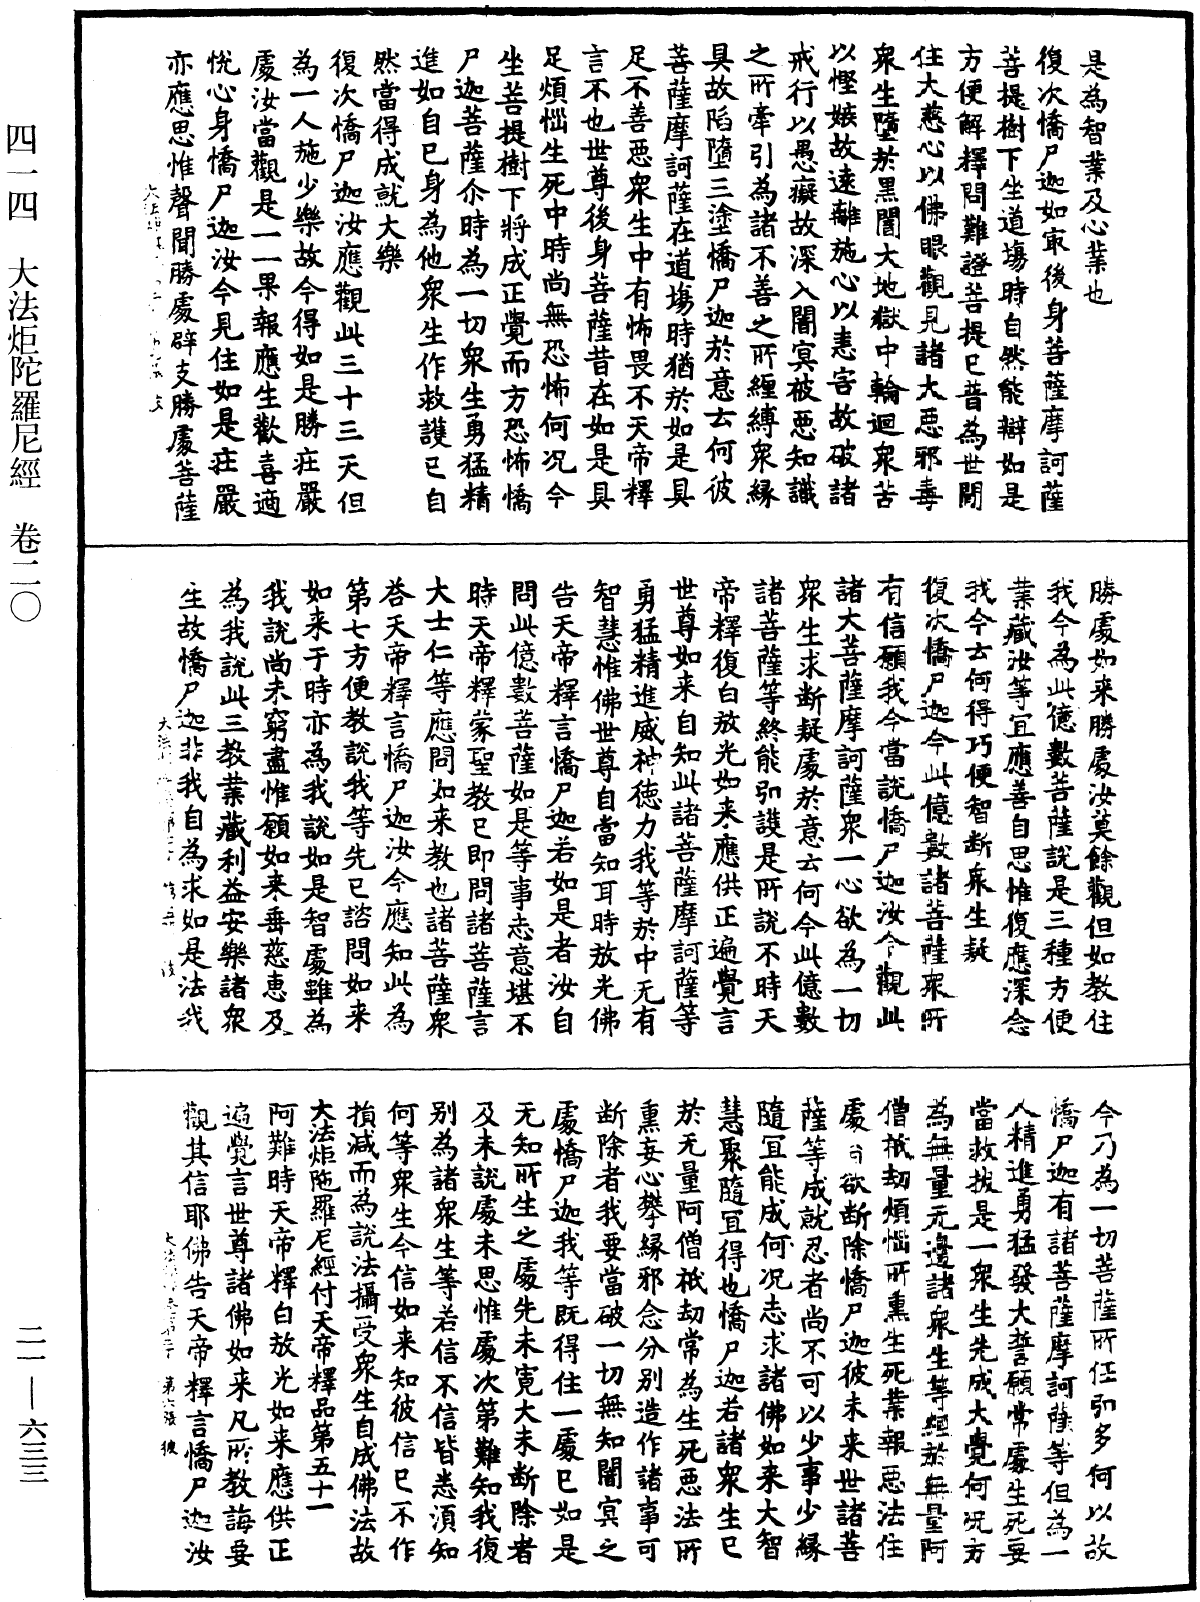 四一四　大法炬陀羅尼經　卷二〇
是為智業及心業也
復次憍尸迦如㝡後身菩薩摩訶薩
菩提樹下坐道塲時自然能辯如是
方便解釋問難證菩提已普為世間
住大慈心以佛眼觀見諸大惡邪毒
衆生墮於黑闇大地獄中輪迴衆苦
以慳嫉故遠離施心以恚害故破諸
戒行以愚癡故深入闇冥被惡知識
之所牽引為諸不善之所纏縛衆緣
具故陷墮三塗憍尸迦於意云何彼
菩薩摩訶薩在道塲時猶於如是具
足不善惡衆生中有怖畏不天帝釋
言不也世尊後身菩薩昔在如是具
足煩惱生死中時尚無恐怖何況今
坐菩提樹下將成正覺而方恐怖憍
尸迦菩薩尒時為一切衆生勇猛精
進如自己身為他衆生作救護已自
然當得成就大樂
復次憍尸迦汝應觀此三十三天但
為一人施少樂故今得如是勝莊嚴
處汝當觀是一一果報應生歡喜適
悅心身憍尸迦汝今見住如是莊嚴
亦應思惟聲聞勝處辟支勝處菩薩
勝處如來勝處汝莫餘觀但如教住
我今為此億數菩薩說是三種方便
業藏汝等宜應善自思惟復應深念
我今云何得巧便智斷衆生疑
復次憍尸迦今此億數諸菩薩衆所
有信願我今當說憍尸迦汝今觀此
諸大菩薩摩訶薩衆一心欲為一切
衆生求斷疑處於意云何今此億數
諸菩薩等終能引護是所說不時天
帝釋復白放光如來應供正遍覺言
世尊如來自知此諸菩薩摩訶薩等
勇猛精進威神德力我等於中无有
智慧惟佛世尊自當知耳時放光佛
告天帝釋言憍尸迦若如是者汝自
問此億數菩薩如是等事志意堪不
時天帝釋蒙聖教已即問諸菩薩言
大士仁等應問如來教也諸菩薩衆
荅天帝釋言憍尸迦汝今應知此為
第七方便教說我等先已諮問如來
如來于時亦為我說如是智處雖為
我說尚未窮盡惟願如來垂慈恵及
為我說此三教業藏利益安樂諸衆
生故憍尸迦非我自為求如是法我
今乃為一切菩薩所任引多何以故
憍尸迦有諸菩薩摩訶薩等但為一
人精進勇猛發大誓願常處生死要
當救拔是一衆生先成大覺何況方
為無量无邊諸衆生等經於無量阿
僧祇劫煩惱所熏生死業報惡法住
處　欲斷除憍尸迦彼未來世諸菩
薩等成就忍者尚不可以少事少緣
隨冝能成何況志求諸佛如來大智
慧聚隨冝得也憍尸迦若諸衆生已
於无量阿僧祇劫常為生死惡法所
熏妄心攀緣邪念分別造作諸事可
斷除者我要當破一切無知闇冥之
處憍尸迦我等既得住一處已如是
无知所生之處先未寛大未斷除者
及未說處未思惟處次第難知我復
別為諸衆生等若信不信皆悉須知
何等衆生今信如來知彼信已不作
損減而為說法攝受衆生自成佛法故
大法炬陁羅尼經付天帝釋品第五十一
阿難時天帝釋白放光如來應供正
遍覺言世尊諸佛如來凡所教誨要
觀其信耶佛告天帝釋言憍尸迦汝
二一—六三三